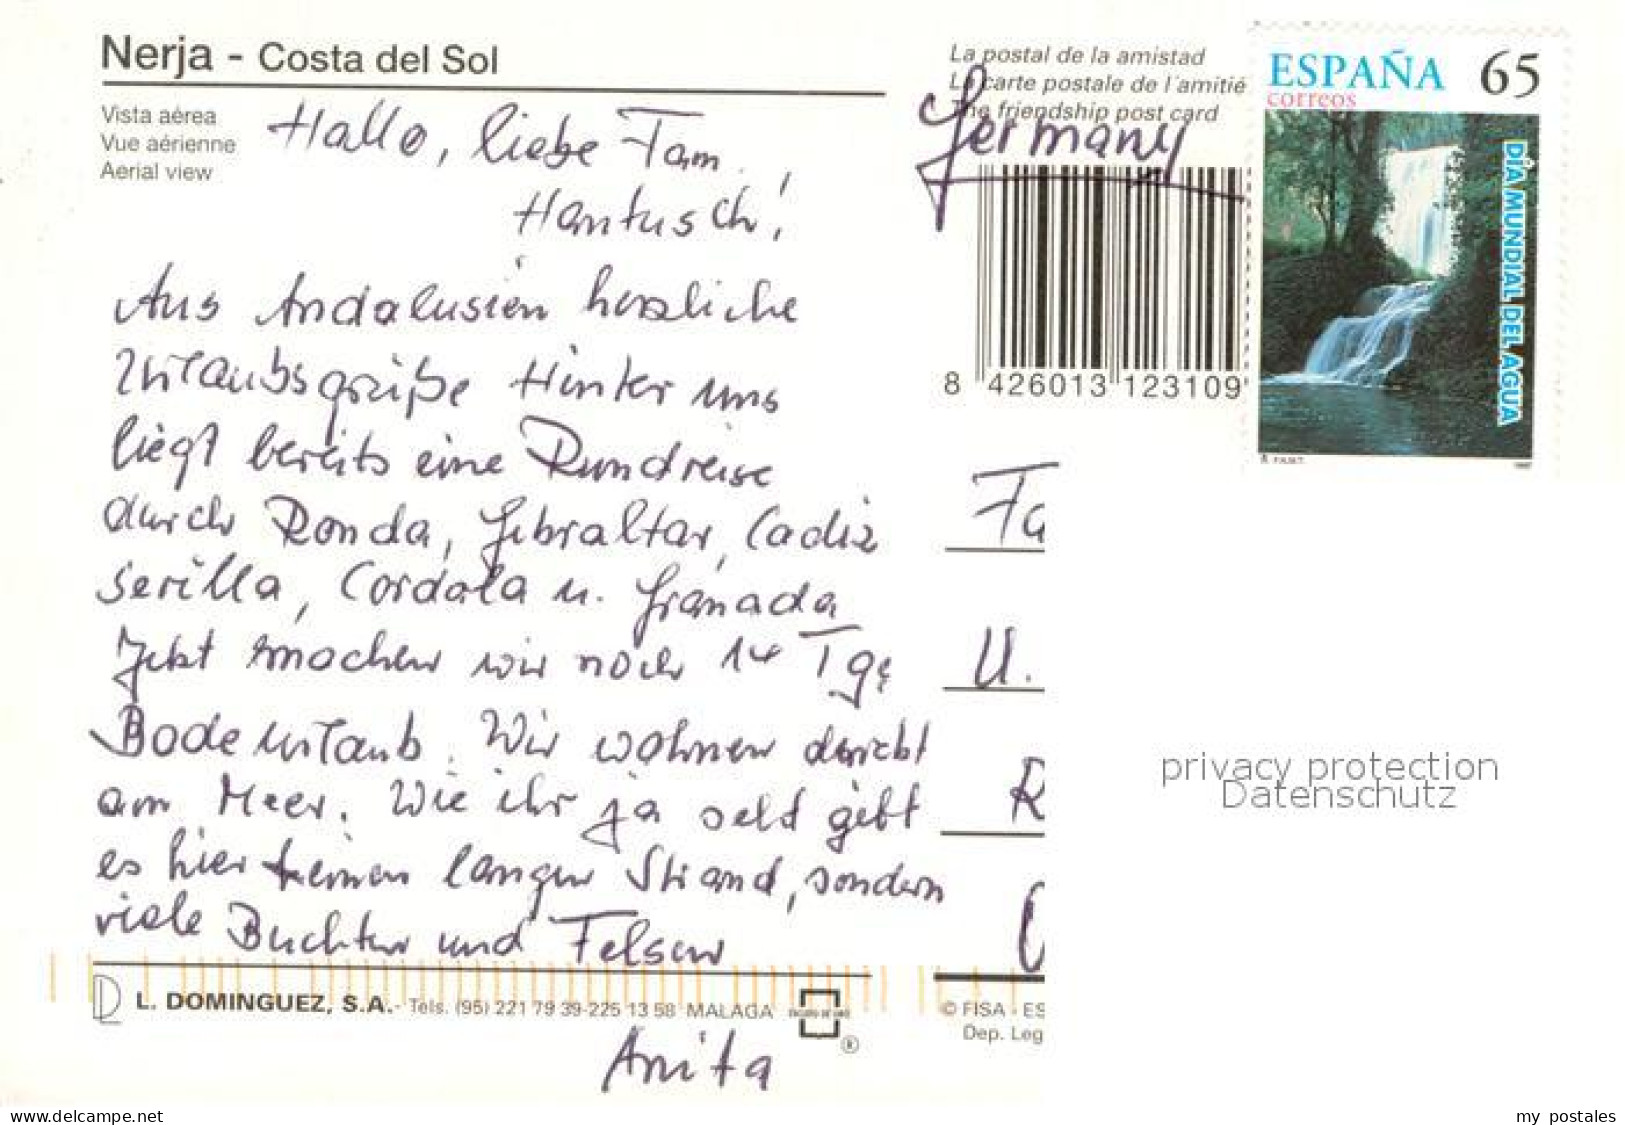 Nerja - Costa del Sol
Vista aérea
Vue aérienne
Aerial view
Hallo, liebe Fam.
Hantusch!
Aus Andalusien herzliche
Urlaubsgrüße Hinter uns
liegt bereits eine Rundreise
durch Ronda, Gibraltar, Cadiz
Sevilla, Cordoba u. Granada
Jetzt machen wir noch 14 Tge
Badeurlaub. Wir wohnen direkt
am Meer. Wie ihr ja seht gibt
es hier keinen langen Strand, sondern
viele Buchten und Felsen
L. DOMINGUEZ, S.A.- Tels. (95) 221 79 39-225 13 58 MALAGA
®
Anita
La postal de la amistad
La carte postale de l'amitié
The friendship post card
Germany
8 426013 123109
ESPAÑA 65
correos
DÍA MUNDIAL DEL AGUA
Fa
U.
R
© FISA - ES
Dep. Leg
privacy protection
Datenschutz
www.delcampe.net
my_postales